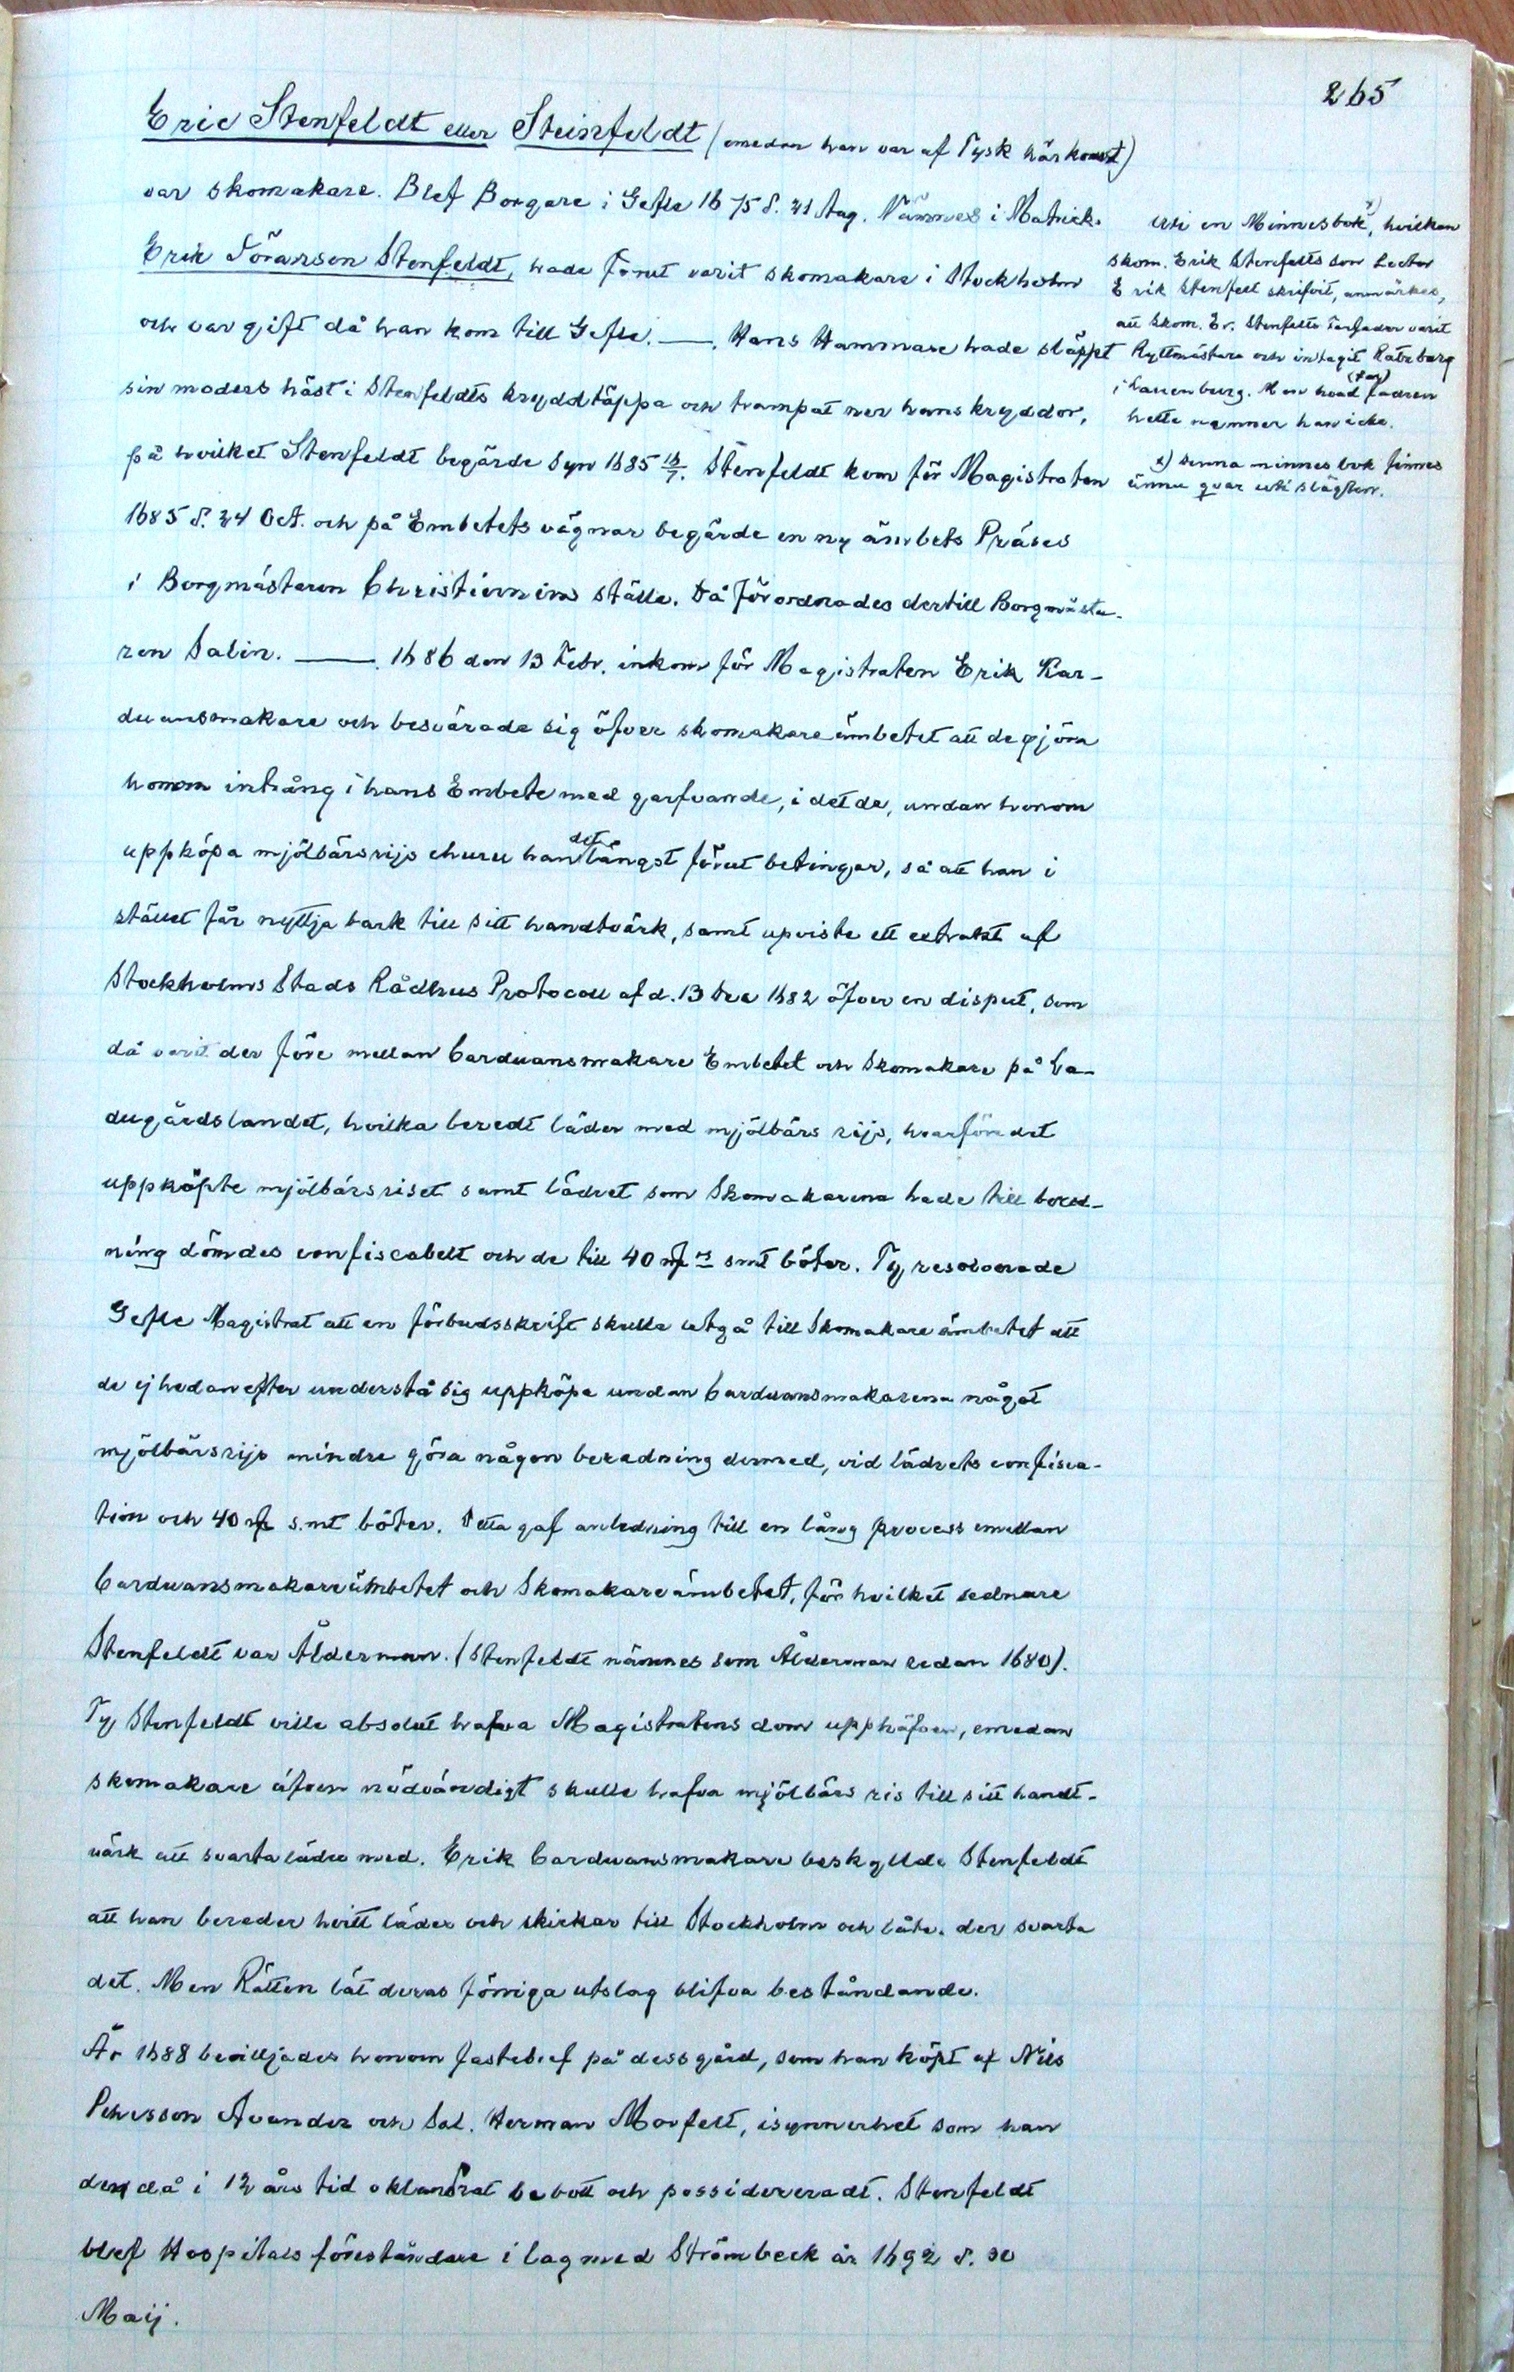 265
Eric Stenfeldt eller Steinfeldt (emedan han var af Tysk härkomst)
var skomakare. Blef Borgare i Gefle 1675 d. 21 Aug. Nämnes i Matrick.
Erik Töransson Stenfeldt, hade förut varit skomakare i Stockholm
och var gift då han kom till Gefle. —. Hans Hammare hade släppt
sin moders häst i Stenfeldts kryddtäppa och trampat ner hans kryddor,
på hvilket Stenfeldt begärde syn 1685 16/7. Stenfeldt kom för Magistraten
1685 d. 24 Oct. och på Embetets vägnar begärde en ny ämbets Präses
i Borgmästaren Christiernins ställe. Då förordnades dertill Borgmästa-
ren Salin. —. 1686 den 13 Febr. inkom för Magistraten Erik Kar-
duansmakare och besvärade sig öfver skomakareämbetet att de gjöra
honom intrång i hans Embete med garfvande, i det de, undan honom
uppköpa mjölbärsrijs ehuru han det längst förut betingar, så att han i
stället får nyttja bark till sitt handtvärk, samt upviste ett extrakt af
Stockholms Stads Rådhus Protocoll af d. 13 Dec 1682 öfver en disput, som
då varit der före mellan Carduansmakare Embetet och Skomakare på La-
dugårdslandet, hvilka beredt läder med mjölbärs rijs, hvarföre det
uppköpte mjölbärsriset samt lädret som Skomakarena hade till bered-
ning dömdes confiscabelt och de till 40 smt böter. Ty resolverade
Gefle Magistrat att en förbudsskrift skulle utgå till Skomakare ämbetet att
de ej hedanefter understå sig uppköpa undan Carduansmakarena något
mjölbärsrijs mindre göra någon beredning dermed, vid lädrets confisca-
tion och 40 s.mt böter. Detta gaf anledning till en lång process emellan
Carduansmakareämbetet och Skomakareämbetet, för hvilket sednare
Stenfeldt var Ålderman. (Stenfeldt nämnes som Ålderman redan 1680).
Ty Stenfeldt ville absolut hafva Magistratens dom upphäfven, emedan
skomakare äfven nödvändigt skulle hafva mjölbärs ris till sitt handt-
värk att svarta läder med. Erik Carduansmakare beskyllde Stenfeldt
att han bereder hvitt läder och skickar till Stockholm och låter der svarta
det. Men Rätten lät deras förriga utslag blifva beståndande.
År 1688 bevilljades honom fastebref på dess gård, som han köpt af Nils
Pehrsson Avander och Sal. Herman Morfelt, isynnerhet som han
den då i 12 års tid oklandrat bebott och possidereradt. Stenfeldt
blef Hospitals föreståndare i lag med Strömbeck år 1692 d. 30
Maij.
Uti en Minnesbok x), hvilken
skom. Erik Stenfelts son Lector
Erik Stenfelt skrifvit, anmärkes,
att Skom. Er. Stenfelts Farfader varit
Ryttmästare och intagit Ratzeburg
i Lauenburg. Men hvad (far)fadren
hette nämner han icke.
x) Denna minnes bok finnes
ännu qvar uti slägten.